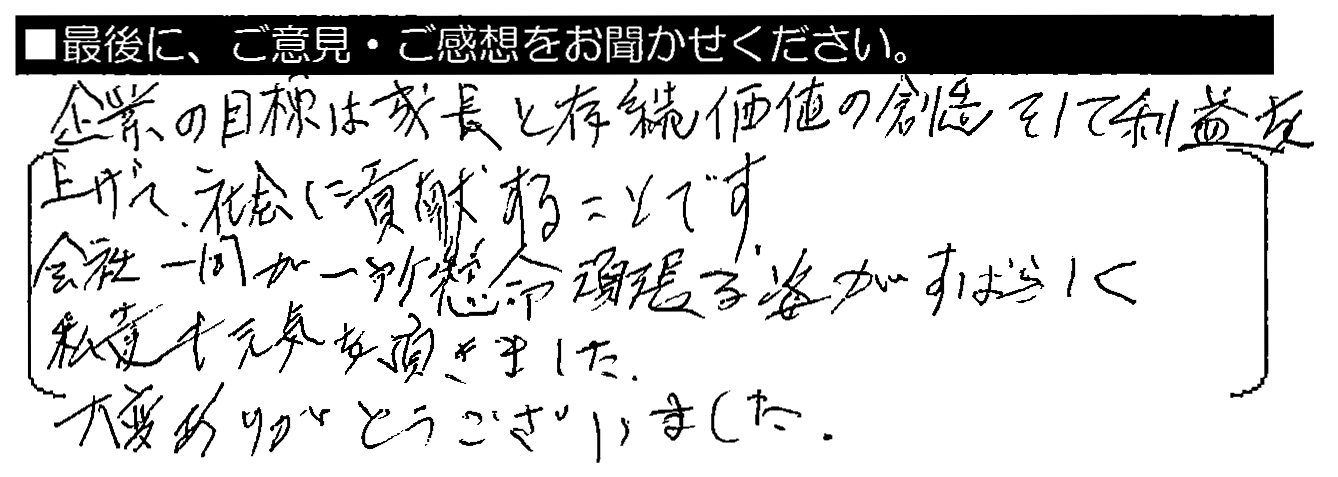 ■最後に、ご意見・ご感想をお聞かせください。
企業の目標は成長と存続価値の創造そして利益を
上げて、社会に貢献することです
会社一同が一所懸命頑張る姿がすばらしく
私達も元気を頂きました.
大変ありがとうございました.